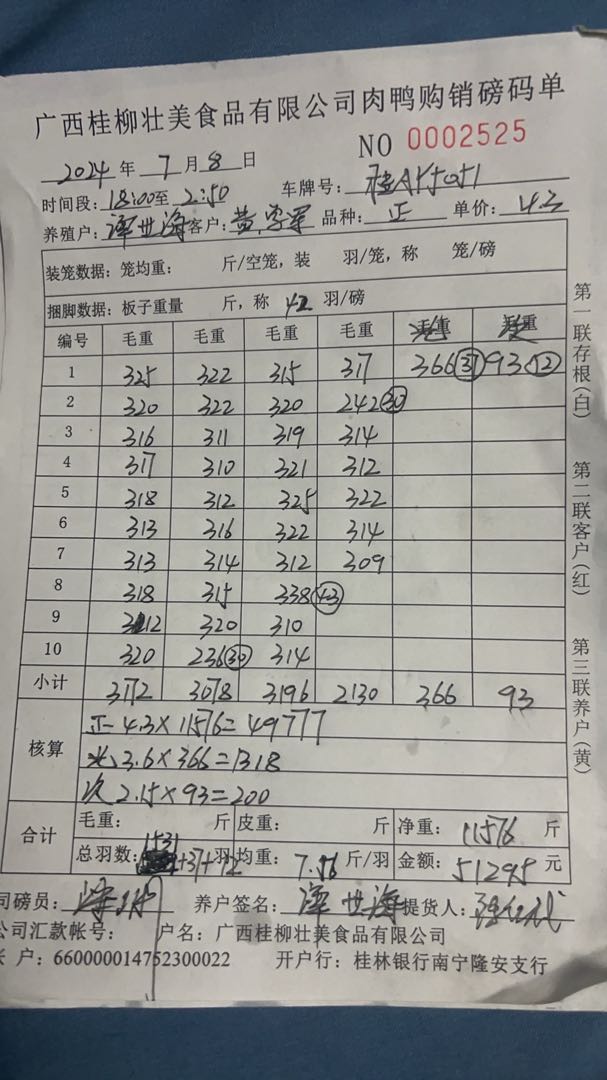 广西桂柳壮美食品有限公司肉鸭购销磅码单
NO 0002525
2024 年 7 月 8 日
时间段: 18:00至 2:50 车牌号:
养殖户: 谭世海 客户: 黄 品种: 正 单价: 4.3
装笼数据: 笼均重: 斤/空笼, 装 羽/笼, 称 笼/磅
捆脚数据: 板子重量 斤, 称 42 羽/磅
编号 毛重 毛重 毛重 毛重 毛重 毛重
1 325 322 315 317 366 37 93 12
2 320 322 320 242 30
3 316 311 319 314
4 317 310 321 312
5 318 312 325 322
6 313 316 322 314
7 313 314 312 309
8 318 315 338 43
9 312 320 310
10 320 236 30 314
小计 3172 3078 3196 2130 366 93
核算 正 4.3×11576=49777
3.6×366=1318
次 2.15×93=200
合计 毛重: 斤 皮重: 斤 净重: 11576 斤
总羽数: 1531 +37+12 羽 均重: 7.56 斤/羽 金额: 51295 元
司磅员: 养户签名: 谭世海 提货人:
公司汇款帐号: 户名: 广西桂柳壮美食品有限公司
户: 660000014752300022 开户行: 桂林银行南宁隆安支行
第一联存根(白)
第二联客户(红)
第三联养户(黄)